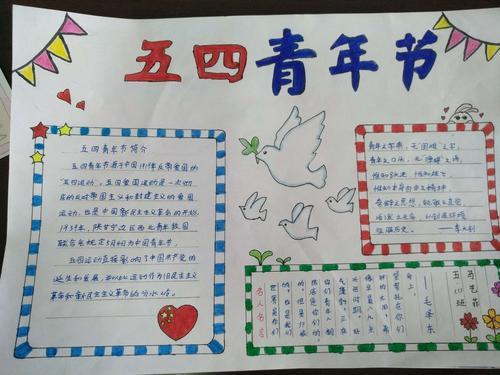 五四青年节
五四青年节简介
五四青年节源于中国1919年反帝爱国的
"五四运动"，五四爱国运动是一次彻
底的反对帝国主义和封建主义的爱国
运动，也是中国新民主主义革命的开始。
1939年，陕甘宁边区西北青年救国
联合会规定5月4日为中国青年节。
五四运动直接影响了中国共产党的
诞生和发展，
革命和新民主主义革命的分水岭。
青年之字典，无"困难"之字，
青年之口头，无"障碍"之语，
惟知跃进，惟知雄飞，
惟知本身自由之精神
奇僻之思想，锐敏之直觉
活泼之生命，以创造环境
征服历史。——李大钊
名人名言
世界是你们
的，也是我们
的，但是归根
结底是你们的。
你们青年人朝
气蓬勃，正在
兴旺时期，好
像早晨八九点
钟的太阳，希
望寄托在你们
身上。
——毛泽东
五(1)班